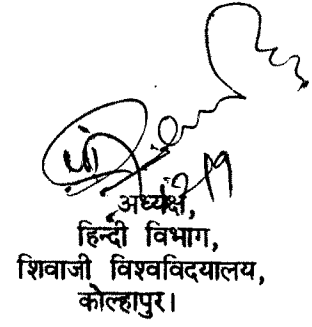 अध्यक्ष,
हिन्दी विभाग,
शिवाजी विश्वविदयालय,
कोल्हापुर।